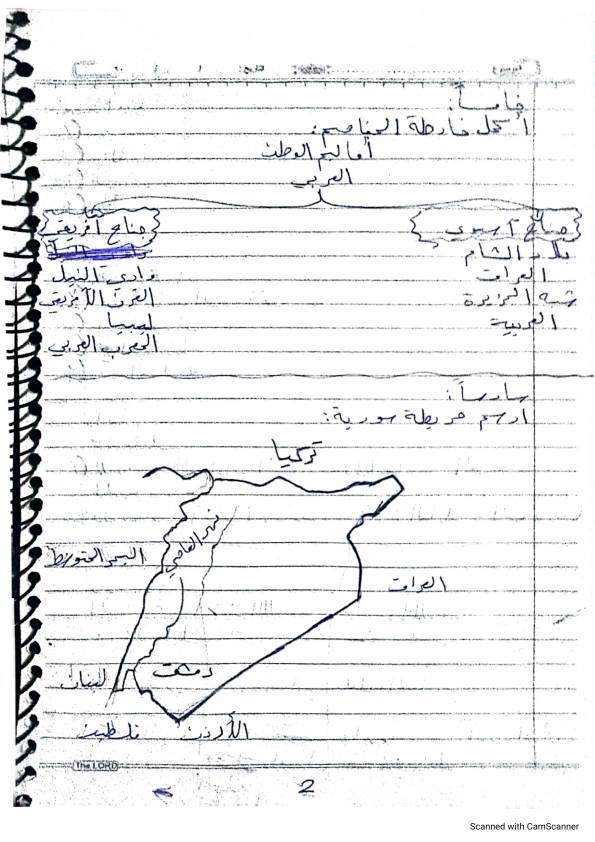 خامساً:
أكمل خارطة المفاهيم:
أقاليم الوطن
العربي
جناح آسيوي
بلاد الشام
العراق
شبه الجزيرة
العربية
جناح أفريقي
وادي النيل
القرن الأفريقي
ليبيا
المغرب العربي
سادساً:
ارسم خريطة سورية:
تركيا
نهر العاصي
البحر المتوسط
العراق
دمشق
لبنان
فلسطين
الأردن
The LORD
2
Scanned with CamScanner